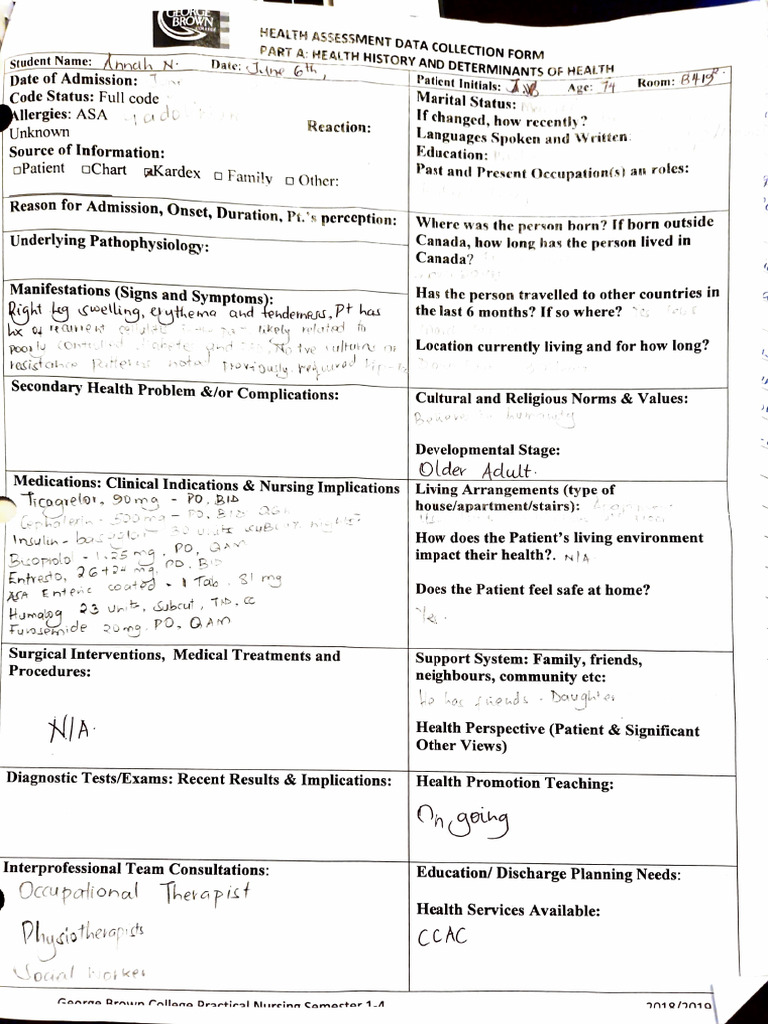 GEORGE
BROWN
COLLEGE
HEALTH ASSESSMENT DATA COLLECTION FORM
PART A: HEALTH HISTORY AND DETERMINANTS OF HEALTH
Student Name: Annah N. Date: June 6th,
Date of Admission:
Code Status: Full code
Allergies: ASA
Unknown Reaction:
Source of Information:
□Patient □Chart ☑Kardex □ Family □ Other:
Reason for Admission, Onset, Duration, Pt.'s perception:
Underlying Pathophysiology:
Manifestations (Signs and Symptoms):
Right leg swelling, erythema and tenderness, Pt has
hx of recurrent likely related to
poorly controlled diabete and
resistance patterns noted previously required
Secondary Health Problem &/or Complications:
Medications: Clinical Indications & Nursing Implications
Ticagrelor, 90mg - PO. BID
Cephalexin - 500mg - PO, BID
Insulin - 30 units subcut
Bisoprolol - 1.25 mg. PO, QAM
Entresto, 26+24 mg, PO. BID
ASA Enteric coated - 1 Tab. 81 mg
Humalog 23 units, subcut, TID, CC
Furosemide 20mg. PO, QAM
Surgical Interventions, Medical Treatments and
Procedures:
N/A.
Diagnostic Tests/Exams: Recent Results & Implications:
Interprofessional Team Consultations:
Occupational Therapist
Physiotherapists
Social worker
Patient Initials: Age: 74 Room: B419
Marital Status:
If changed, how recently?
Languages Spoken and Written:
Education:
Past and Present Occupation(s) an roles:
Where was the person born? If born outside
Canada, how long has the person lived in
Canada?
Has the person travelled to other countries in
the last 6 months? If so where?
Location currently living and for how long?
Cultural and Religious Norms & Values:
Believe in humanity
Developmental Stage:
Older Adult.
Living Arrangements (type of
house/apartment/stairs):
How does the Patient's living environment
impact their health?. N/A
Does the Patient feel safe at home?
Yes.
Support System: Family, friends,
neighbours, community etc:
He has friends - Daughter
Health Perspective (Patient & Significant
Other Views)
Health Promotion Teaching:
On going
Education/ Discharge Planning Needs:
Health Services Available:
CCAC
George Brown College Practical Nursing Semester 1-4 2018/2019